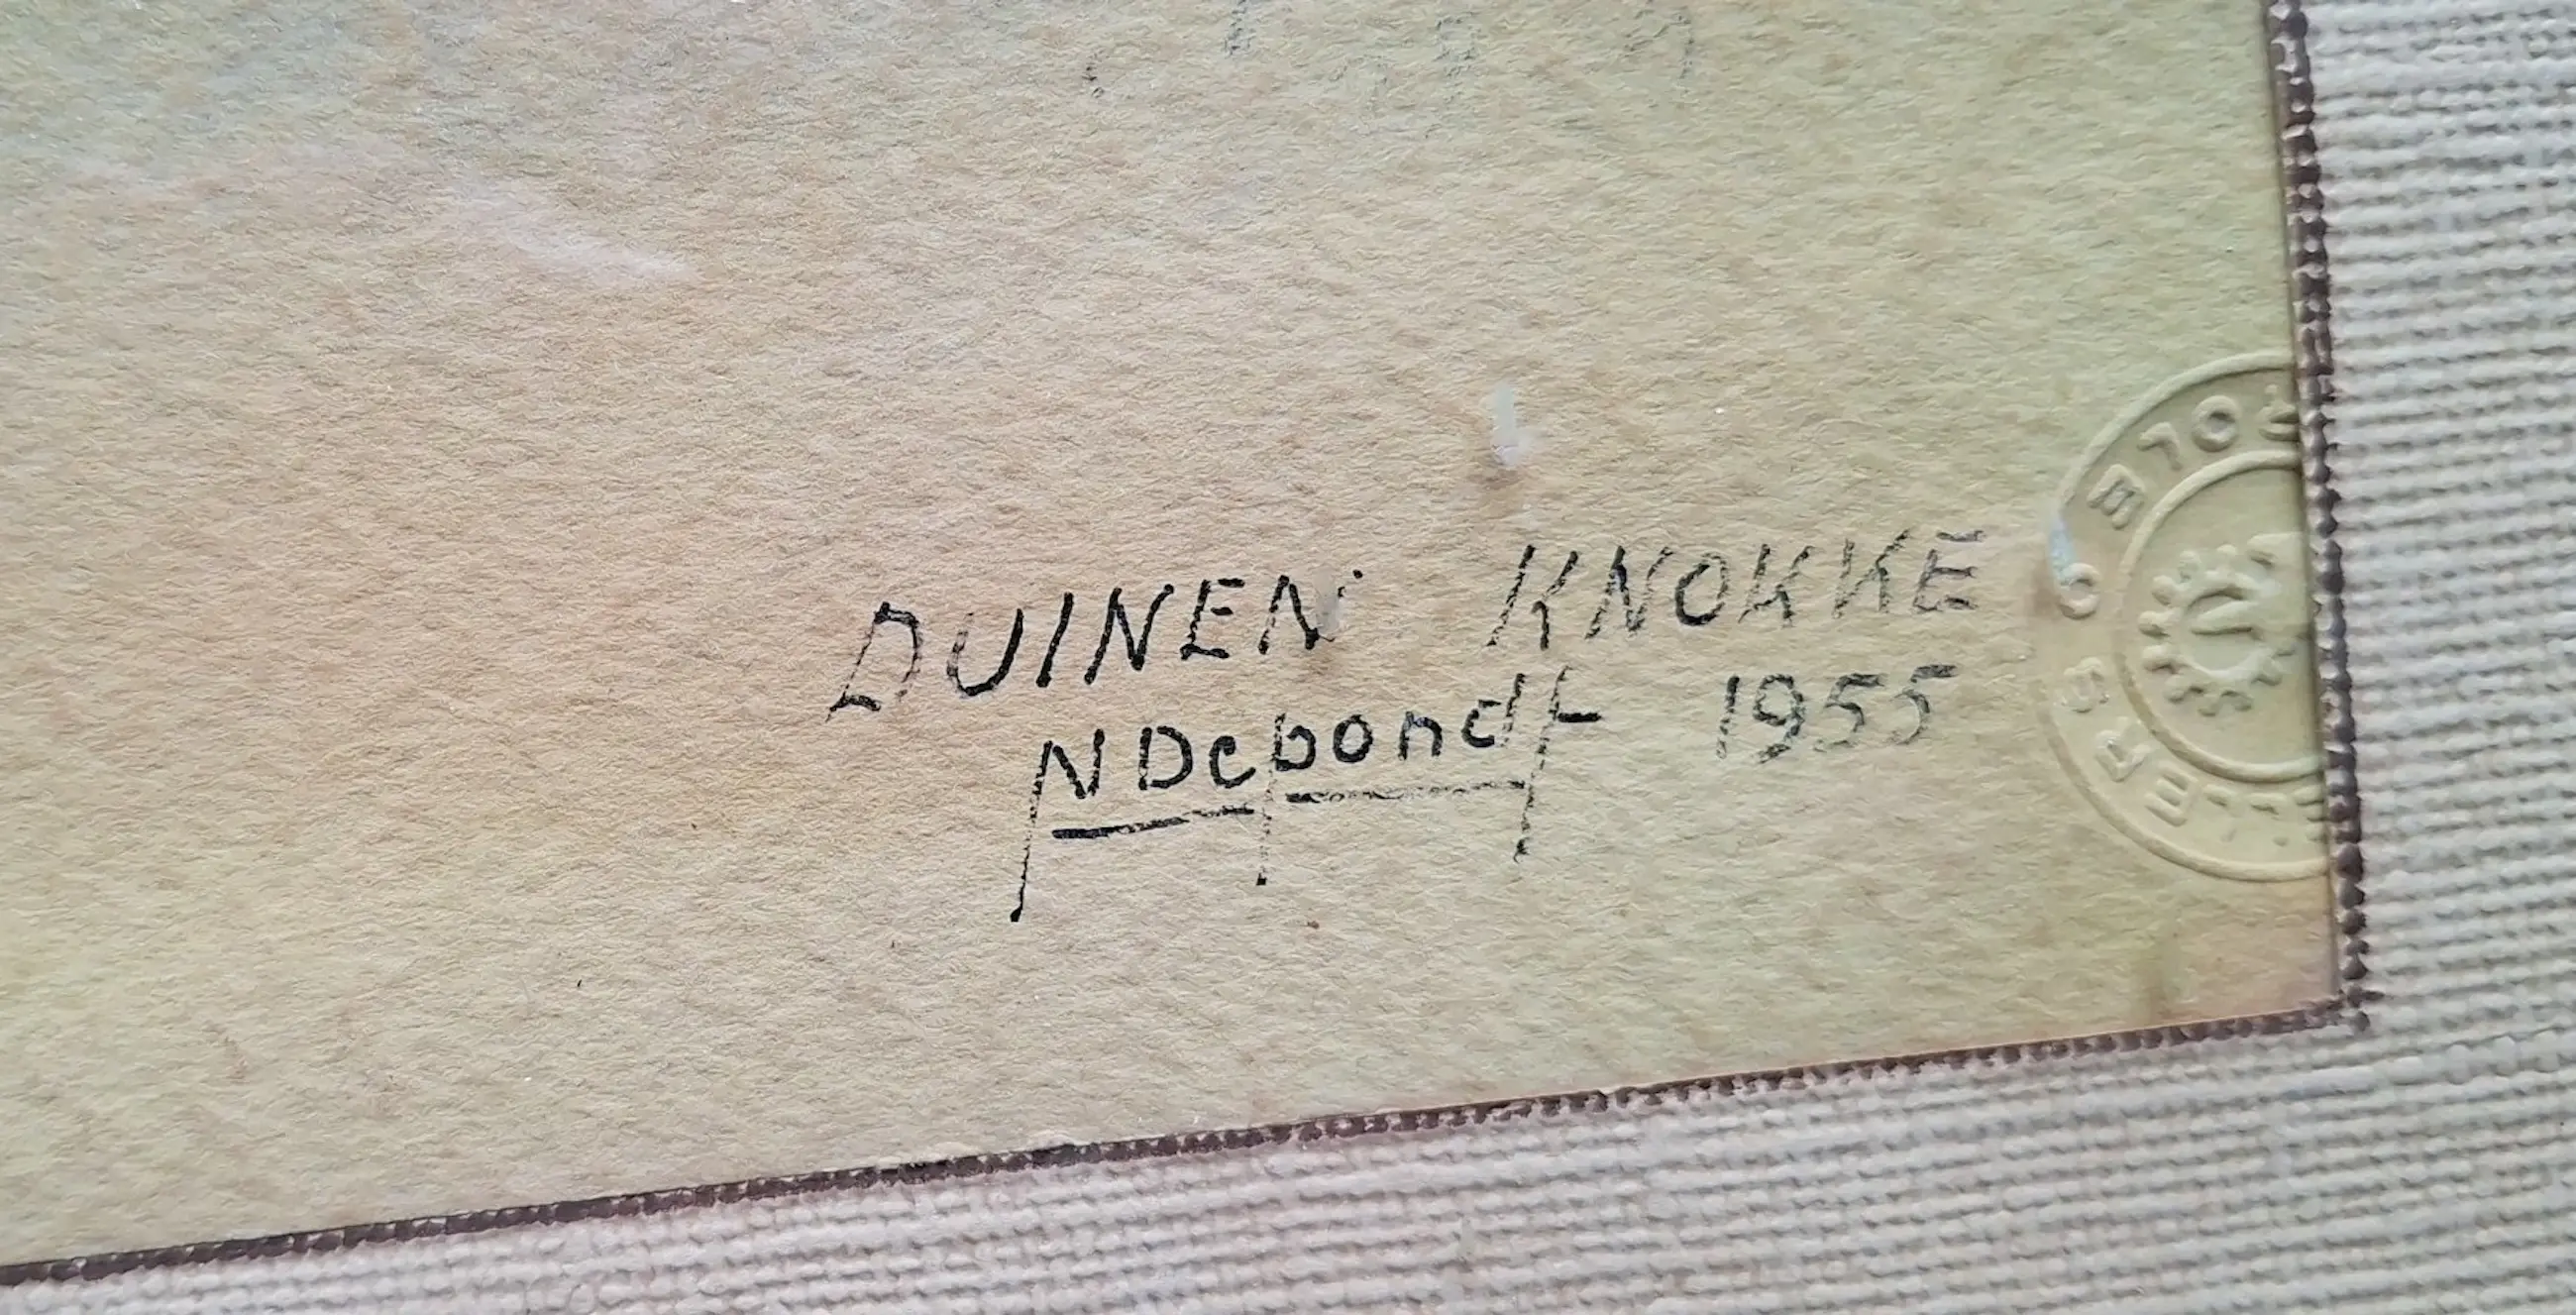 DUINEN KNOKKE
NDebondt 1955